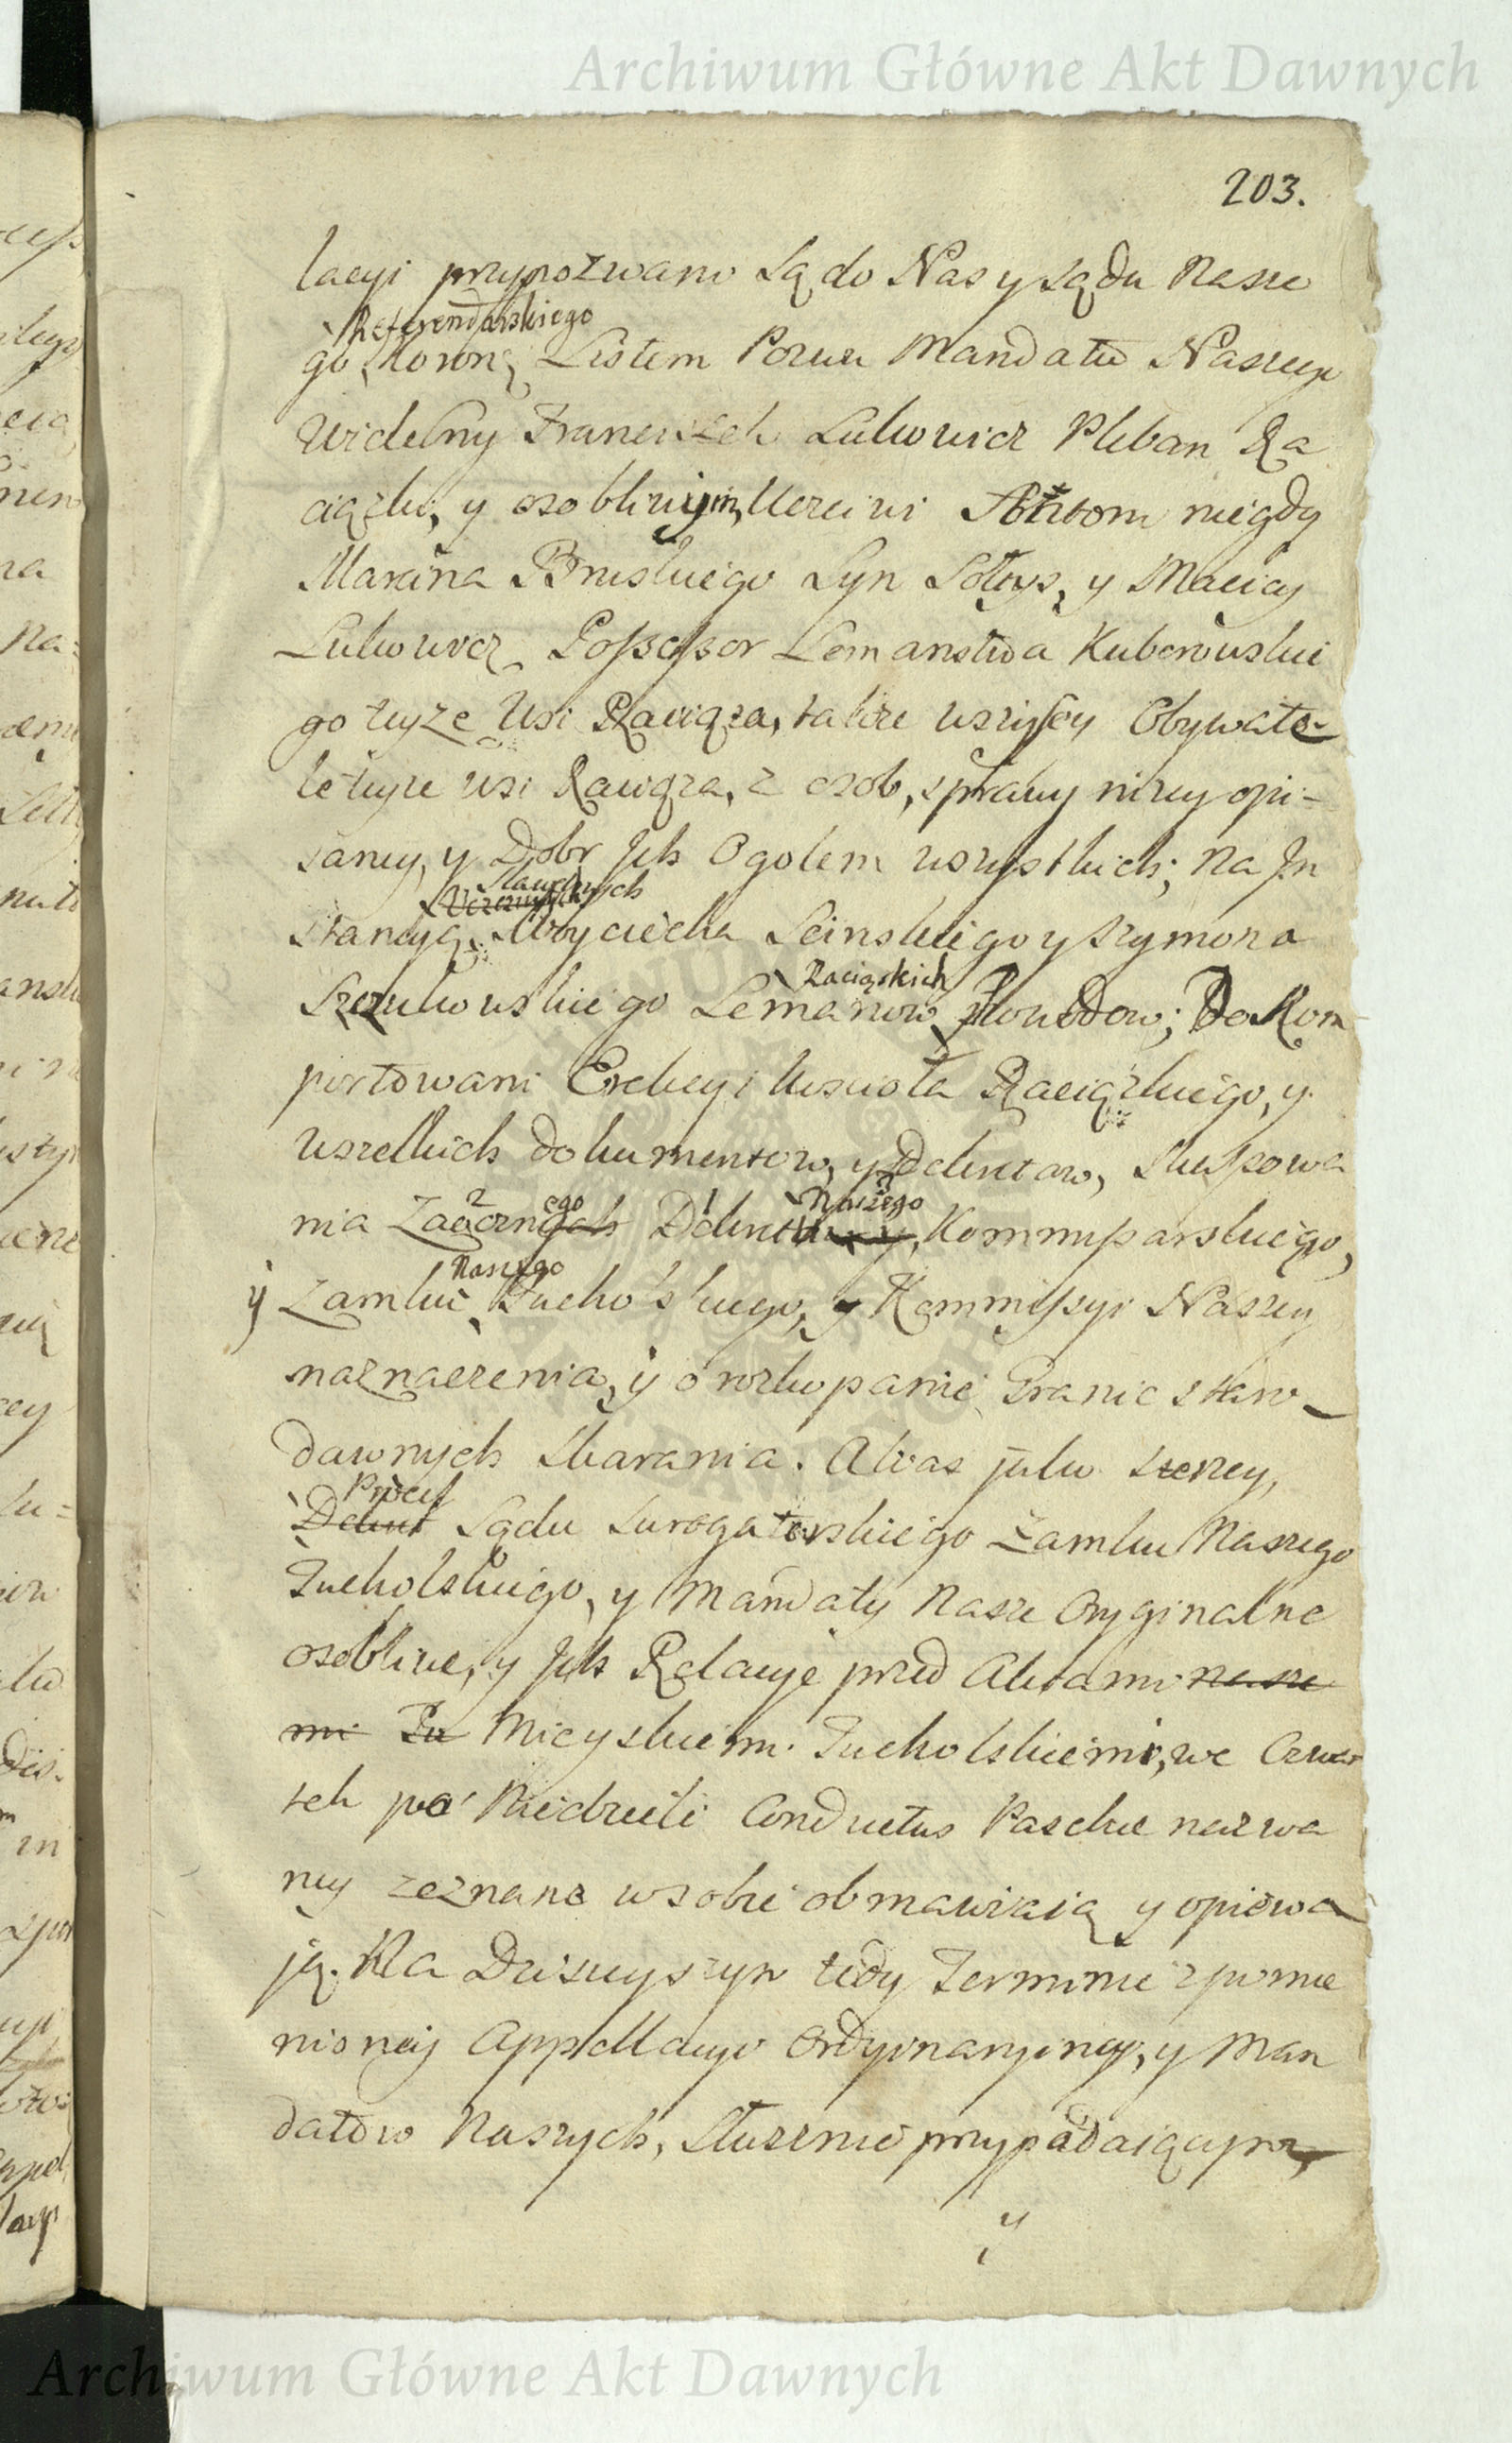 Archiwum Główne Akt Dawnych
203.
lacyi przypozwani Są do Nas y sądu Nasze
Referendarskiego
go Koron: Listem Pozwu Mandatu Naszego
Wielebny Franciszek Lulkowicz Pleban Ra
ciązki, y osobliwym, Uczciwi niegdy
Marcina Pruskiego Syn Sołtys, y Maciey
Lulkowicz Possessor Lemanstwa
go teyze Wsi Raciąza, także wszyscy Obywate-
le teyze wsi Raciąza, z osob, sprawy nizey opi-
saney, y Dobr Jch Ogolem wszystkich; na Jn
Sławetnych
stancyą Woyciecha Leinskiego y Szymona
Raciąskich
Lemanow Powodow; Do Kom
portowani Erekcyi Kosciola Raciązkiego, y
wszelkich dokumentow, y Dekretow,
nia 2 ego Dekretu 1 Naszego Kommissarskiego,
Naszego
y Zamku Tucholskiego, y Kommissyi Naszey
naznaczenia, y o rozkopanie Granic staro-
dawnych skarania. Aktas jako szerzey,
Process
Dekret Sądu Surogatorskiego Zamku Naszego
Tucholskiego, y Mandaty Nasze Oryginalne
osobliwe, y Jch Relacye przed Aktami nasze
mi Tu Mieyskiemi Tucholskiemi, we Czwar
tek po Niedzieli Conductus Paschae nazwa
ney zeznane w sobie obmawiaią y opiewa
ją. Na Dzisieyszym tedy Terminie zpomie
nioney Appellacyi Ordynaryiney, y Man
datow Naszych, słusznie przypadaiącym,
y
Archiwum Główne Akt Dawnych